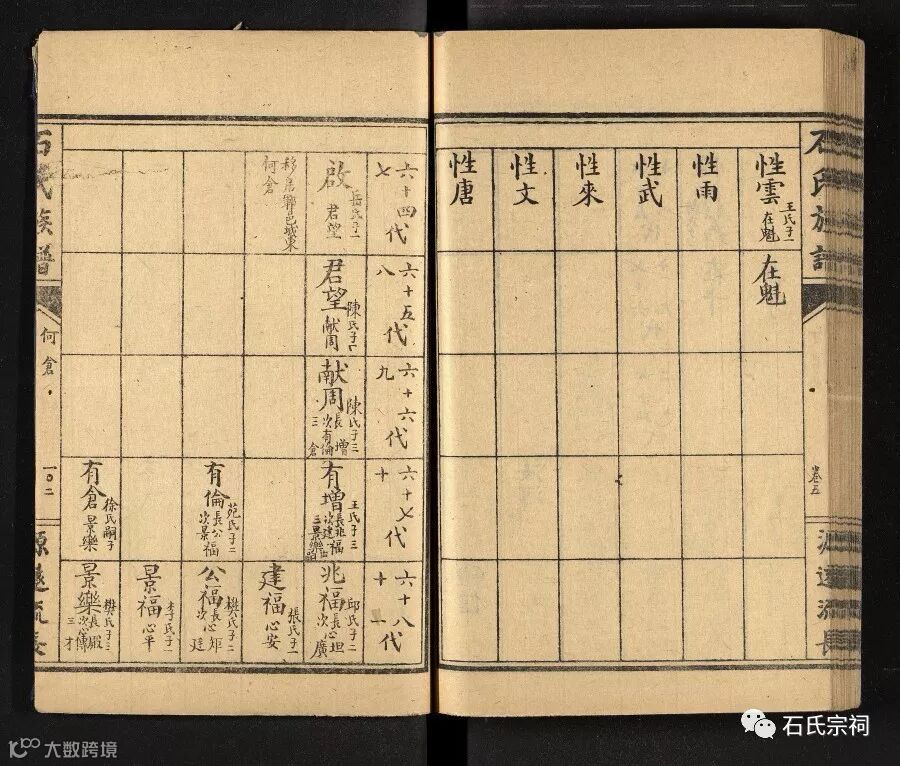 石氏族譜
卷五
源遠流長
性雲
王氏子一
在魁
性雨
性武
性來
性文
性唐
在魁
六十四代
七
啟
岳氏子一
君望
移居鄲邑城東
何倉
六十五代
八
君望
陳氏子一
献周
六十六代
九
献周
陳氏子三
長增
次有倫
三倉
六十七代
十
有增
王氏子三
長兆福
次建
有倫
苑氏子二
長公福
次景
有倉
徐氏嗣子
景樂
六十八代
十一
兆福
邱氏子二
長心坦
次廣
建福
張氏子一
心安
公福
樊氏子二
長心矩
次廷
景福
李氏子一
心平
景樂
樊氏子三
次傳
三才
石氏族譜
何倉
一〇二
源遠流長
石氏宗祠
大数跨境